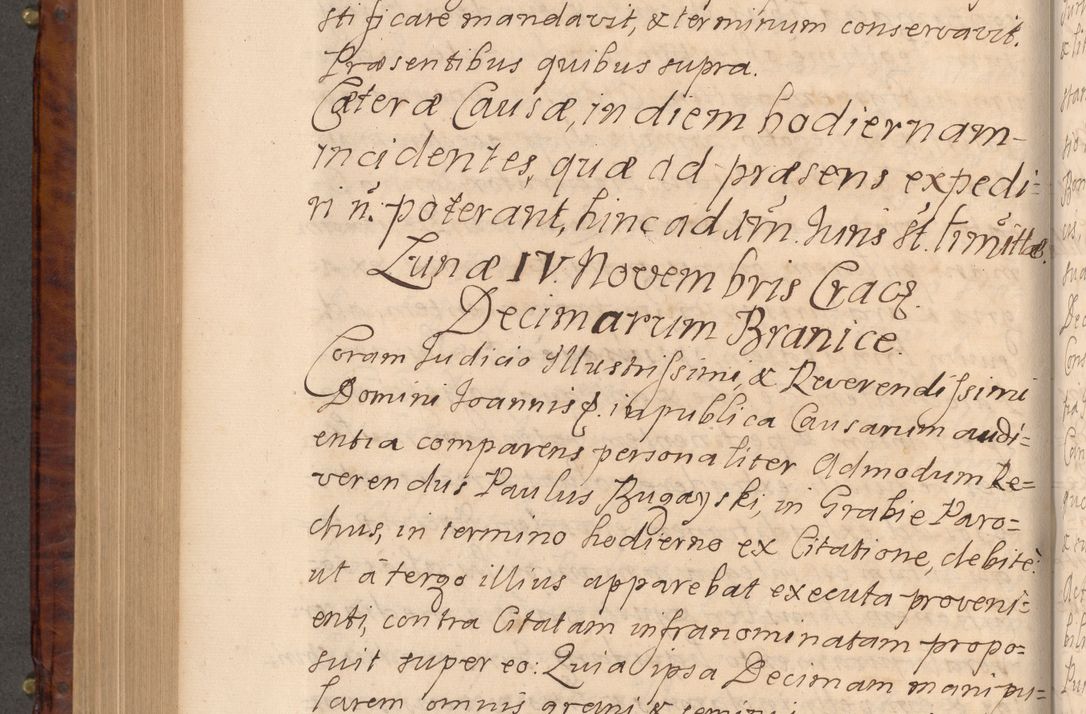 stificare mandavit, & terminum conservavit.
Præsentibus quibus supra.
Cæteræ Causæ, in diem hodiernam
incidentes, quæ ad præsens expedi=
ri ñ. poterant, hinc ad Juris st.
Lunæ IV. Novembris Crac
Decimarum Branice.
Coram Judicio Illustrissimi, & Reverendissimi
Domini Joannis in publica Causarum audi=
entia comparens personaliter Admodum Re=
verendus Paulus Bugayski, in Grabie Paro=
chus, in termino hodierno ex Citatione, debitè
ut à tergo illius apparebat executa proveni=
enti, contra Citatam infranominatam propo=
suit super eo: Quia ipsa Decimam manipu=
larem omnis grani & seminis